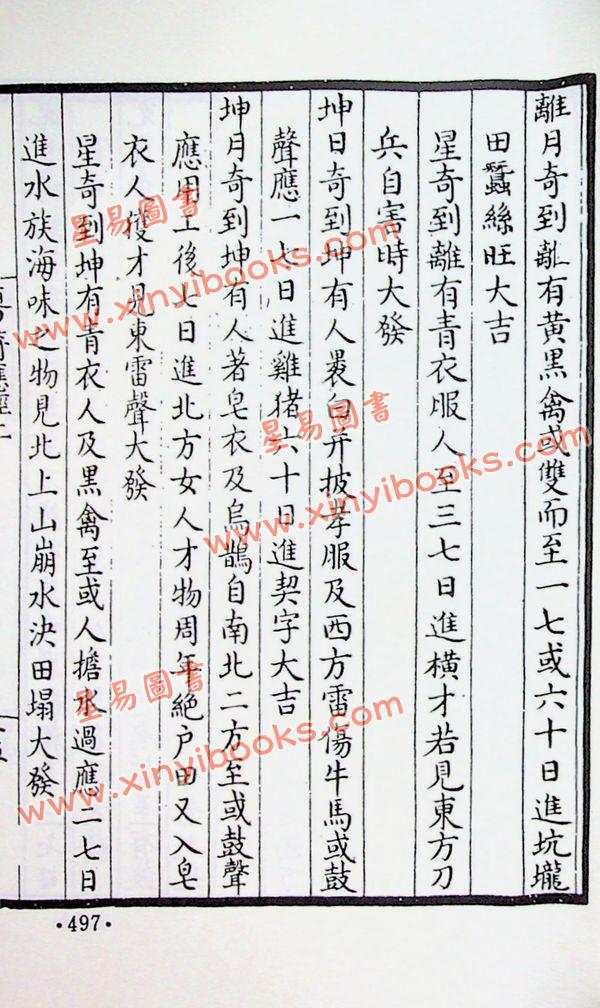 離月奇到離有黃黑禽或雙而至一七或六十日進坑壠
田蠶絲旺大吉
星奇到離有青衣服人至三七日進橫才若見東方刀
兵自害時大發
坤日奇到坤有人裹白并披孝服及西方雷傷牛馬或鼓
聲應一七日進雞猪六十日進契字大吉
坤月奇到坤有人著皂衣及烏鵲自南北二方至或鼓聲
應用上後七日進北方女人才物周年絕户田又入皂
衣人獲才見東雷聲大發
星奇到坤有青衣人及黑禽至或人擔水過應二七日
進水族海味之物見北上山崩水決田塌大發
·497·
星易圖書
www.xinyibooks.com
星易圖書
www.xinyibooks.com
星易圖書
www.xinyibooks.com